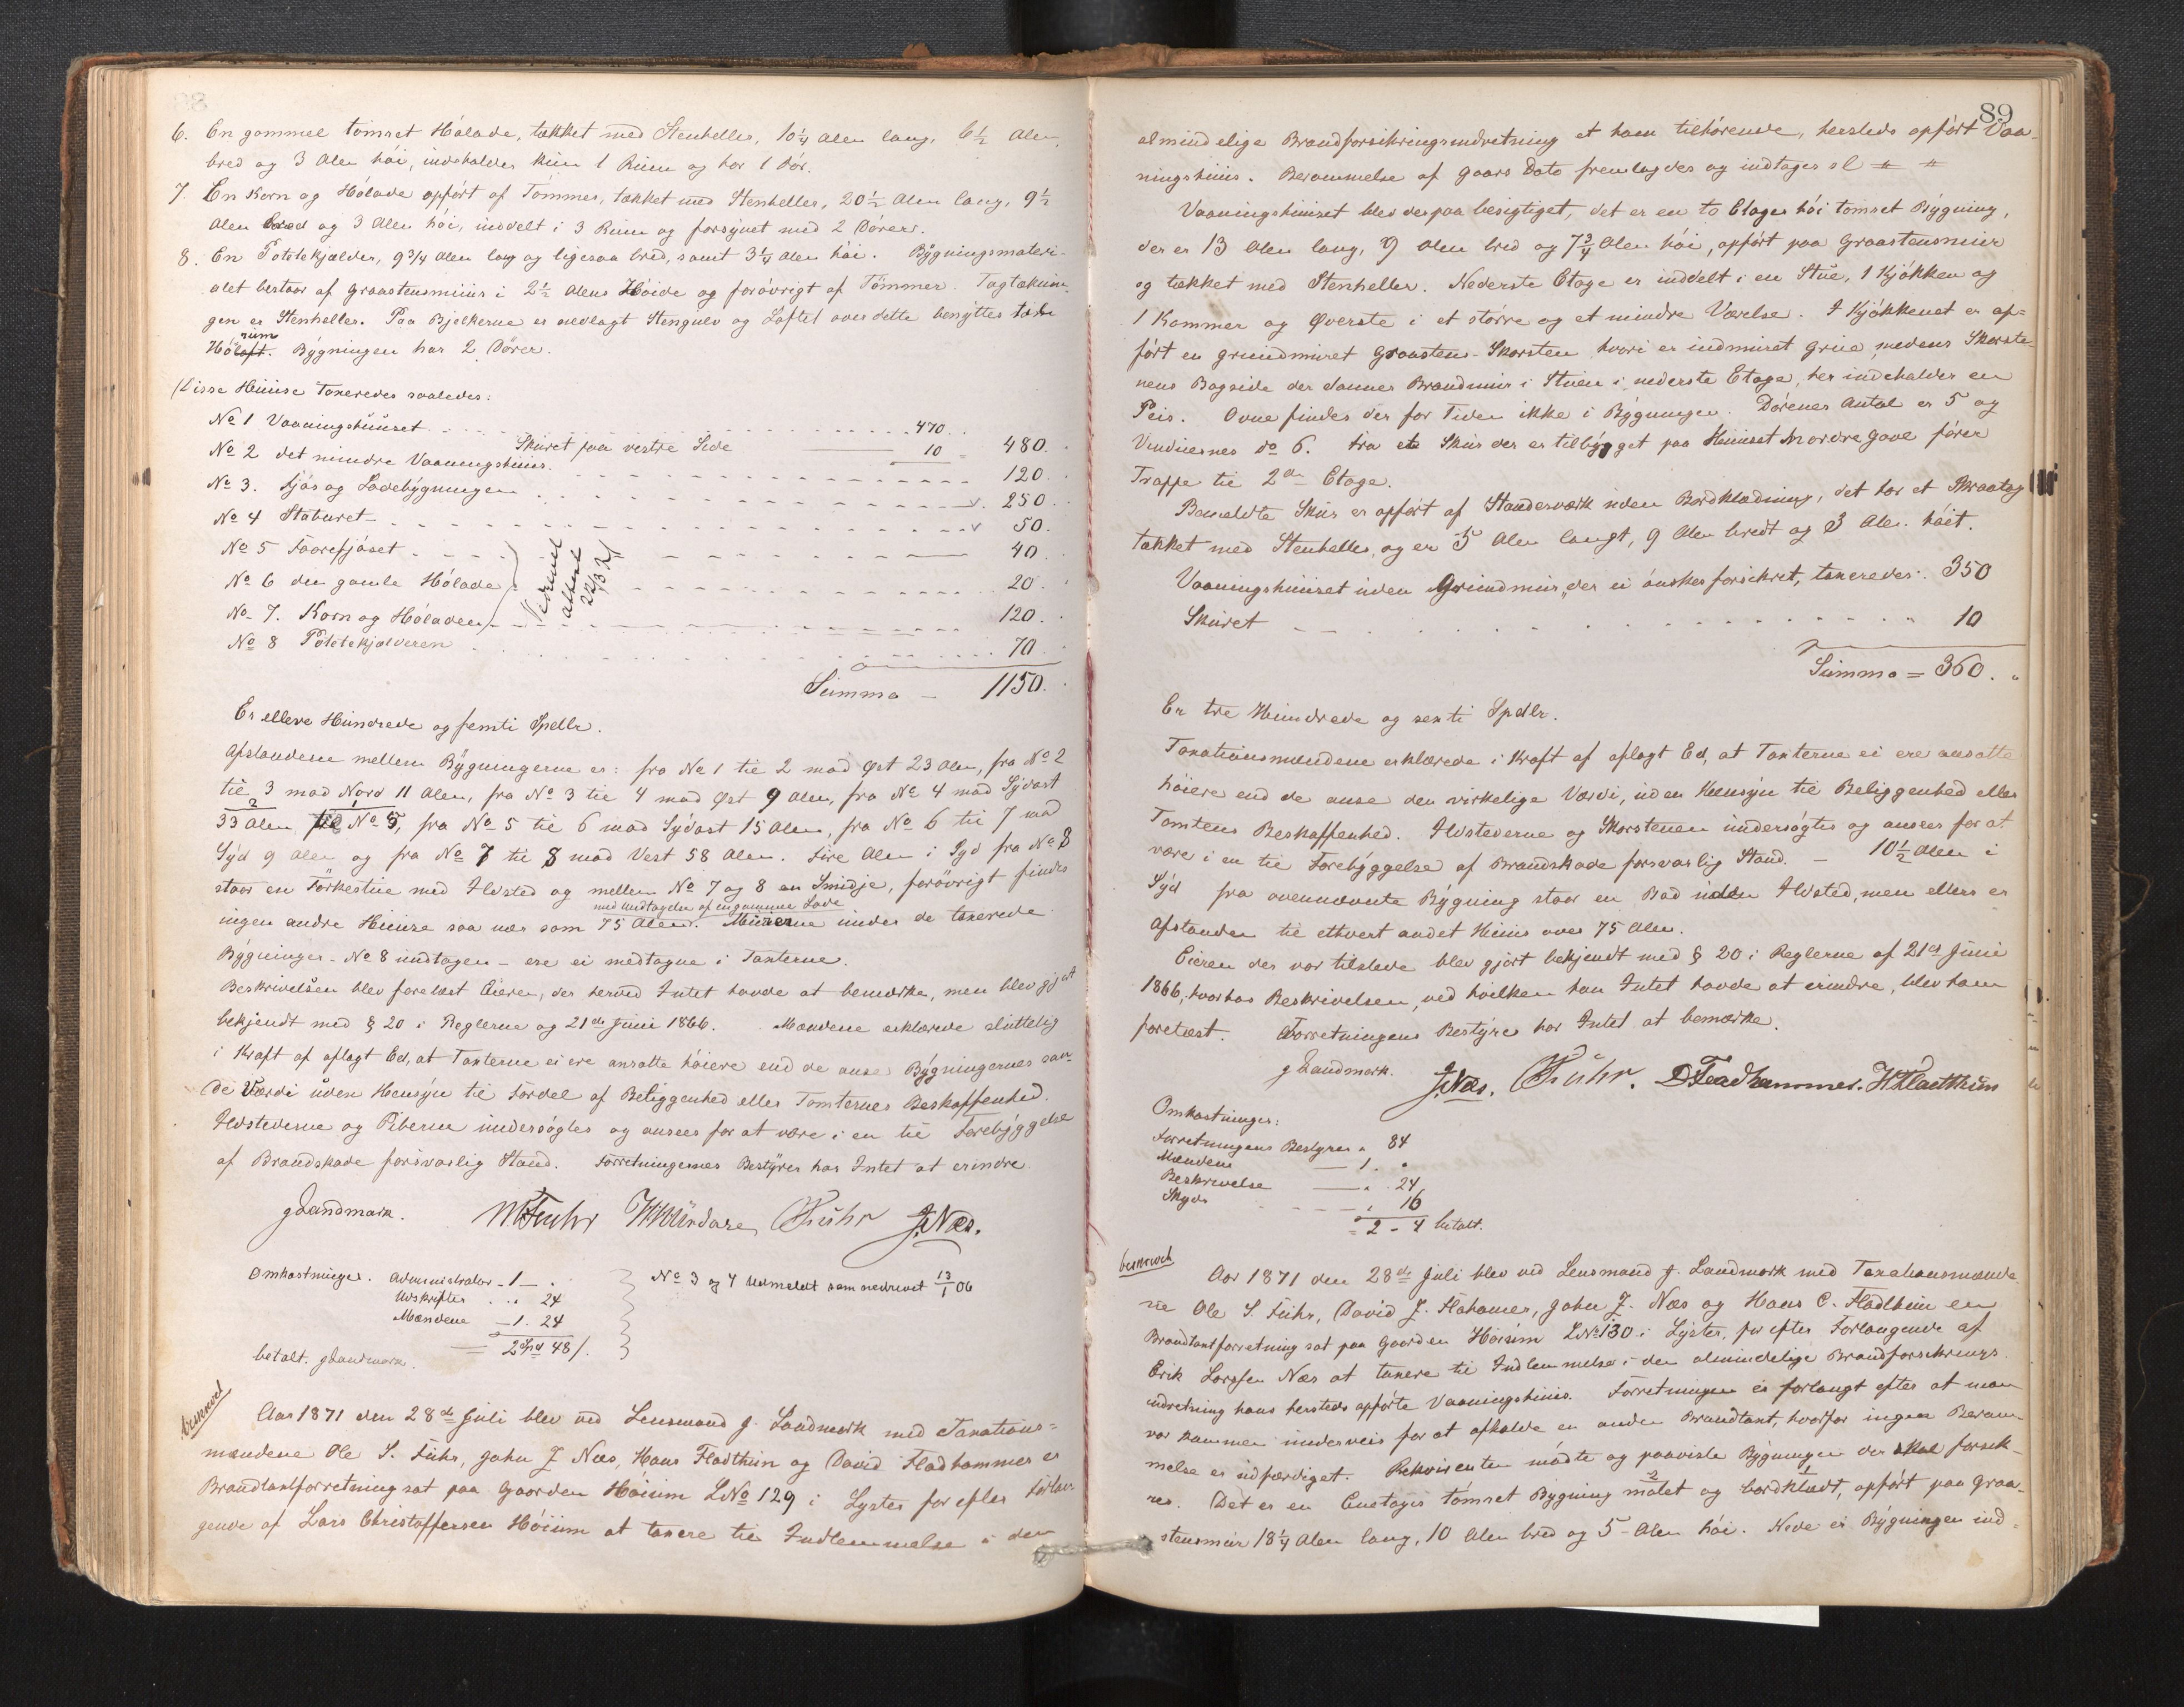 88
6. En gammel tømret Hølade, tækket med Stenheller, 10¼ Alen lang, 6½ Alen
bred og 3 Alen høi, indeholder kun 1 Rum og har 1 Dør.
7. En Korn og Hølade opført af Tømmer, tækket med Stenheller, 20½ Alen lang, 9½
Alen bred og 3 Alen høi, inddelt i 3 Rum og forsynet med 2 Dører.
8. En Potetekjælder, 9¾ Alen lang og ligesaa bred, samt 3¼ Alen høi. Bygningsmateri-
alet bestaar af Graastensmuur i 2½ Alens Høide og forøvrigt af Tømmer. Tagtæknin-
gen er Stenheller. Paa Bjelkerne er nedlagt Stengulv og Loftet over dette benyttes til
rum
Høloft. Bygningen har 2 Dører.
Disse Huuse Taxeredes saaledes:
No 1 Vaaningshuuset 470
Skuret paa vestre Side 10 = 480.
No 2 det mindre Vaaningshuus. 120.
No 3. Fjøs og Ladebygningen 250.
No 4 Staburet 50.
No 5 Faarefjøset 40
No 6 den gamle Hølade 20.
No 7. Korn og Høladen 120.
No 8 Potetekjælderen 70.
Summa – 1150.
Er elleve Hundrede og femti Spdlr.
Afstandene mellem Bygningerne er: fra No 1 til 2 mod Øst 23 Alen, fra No 2
til 3 mod Nord 11 Alen, fra No 3 til 4 mod Øst 9 Alen, fra No 4 mod Sydost
33 Alen til No 5, fra No 5 til 6 mod Sydost 15 Alen, fra No 6 til 7 mod
Syd 9 Alen og fra No 7 til 8 mod Vest 58 Alen. Fire Alen i Syd fra No 8
staar en Tørkestue med Ildsted og mellem No 7 og 8 en Smidje, forøvrigt findes
med Undtagelse af en gammel Lade
ingen andre Huuse saa nær som 75 Alen. Murerne under de taxerede
Bygninger – No 8 undtagen – ere ei medtagne i Taxterne.
Beskrivelsen blev forelæst Eieren, der herved Intet havde at bemærke, men blev gjort
bekjendt med § 20 i Reglerne og 21de Juni 1866. Mændene erklærede sluttelig
i Kraft af aflagt Ed, at Taxterne ei ere ansatte høiere end de anse Bygningernes san-
de Værdi uden Hensyn til Fordel af Beliggenhed eller Tomternes Beskaffenhed.
Ildstederne og Piberne undersøgtes og ansees for at være i en til Forebyggelse
af Brandskade forsvarlig Stand. Forretningernes Bestyrer har Intet at erindre.
J Landmark. OFuhr J. Næs.
Omkostninger. Administrator – 1 – .
Udskrifter . . . 24
Mændene – 1. 24
= 2 Spd 48 /.
betalt. J Landmark.
No 3 og 4 Udmeldt som nedrevet 13/1 06
Aar 1871 den 28de Juli blev ved Lensmand J. Landmark med Taxations-
mændene Ole S. Fuhr, John J Næs, Hans Fladthun og David Fladhammer en
Brandtaxtforretning sat paa Gaarden Høium LNo 129 i Lyster for efter Forlan-
gende af Lars Christoffersen Høium at taxere til Indlemmelse i den
89
almindelige Brandforsikringsindretning et ham tilhørende, hersteds opført Vaa-
ningshuus. Berammelse af Gaars Dato fremlagdes og indtages sl
Vaaningshuuset blev derpaa besigtiget, det er en to Etager høi tømret Bygning,
der er 13 Alen lang, 9 Alen bred og 7¾ Alen høi, opført paa Graastensmuur
og tækket med Stenheller. Nederste Etage er inddelt i en Stue, 1 Kjøkken og
1 Kammer og Øverste i et større og et mindre Værelse. I Kjøkkenet er op-
ført en grundmuret Graastens-Skorsten hvori er indmuret Grue, medens Skorste-
nens Bagside der danner Brandmuur i Stuen i nederste Etage, her indeholder en
Peis. Ovne findes der for Tiden ikke i Bygningen. Dørenes Antal er 5 og
Vinduernes do 6. Fra et Skur der er tilbygget paa Huuset Nordre Gavl fører
Trappe til 2den Etage.
Bemeldte Skur er opført af Standerværk uden Bordklædning, det har et Skraatag
tækket med Stenheller, og er 5 Alen langt, 9 Alen bredt og 3 Alen høit.
Vaaningshuuset uden Grundmur, der ei ønskes forsikret, taxeredes: 350
Skuret 10
Summa = 360.
Er tre Hundrede og sexti Spdlr.
Taxationsmændene erklærede i Kraft af aflagt Ed, at Taxterne ei ere ansatte
høiere end de anse den virkelige Værdi, uden Hensyn til Beliggenhed eller
Tomtens Beskaffenhed. Ildstederne og Skorstenen undersøgtes og ansees for at
være i en til Forebyggelse af Brandskade forsvarlig Stand. – 10½ Alen i
Syd fra ovennævnte Bygning staar en Bod uden Ildsted, men ellers er
Afstanden til ethvert andet Huus over 75 Alen.
Eieren der var tilstede blev gjort bekjendt med § 20 i Reglerne af 21de Juni
1866, hvorhos Beskrivelsen, ved hvilken han Intet havde at erindre, blev ham
forelæst. Forretningens Bestyrer har Intet at bemærke.
J Landmark. J. Næs. OFuhr. D Fladhammer. H Fladthun
Omkostninger:
Forretningens Bestyrer . 84
Mændene – 1. .
Beskrivelse – . 24
Skyds . 16
= 2 – 4 betalt.
Aar 1871 den 28de Juli blev ved Lensmand J. Landmark med Taxationsmænde-
ne Ole S. Fuhr, David J. Flahamer, John J. Næs og Hans C. Fladthun en
Brandtaxtforretning sat paa Gaarden Høium LNo 130 i Lyster, for efter Forlangende af
Erik Larssen Næs at taxere til Indlemmelse i den almindelige Brandforsikrings-
indretning hans hersteds opførte Vaaningshuus. Forretningen er forlangt efter at man
var kommen underveis for at afholde en anden Brandtaxt, hvorfor ingen Beram-
melse er udfærdiget. Rekvirenten mødte og paaviste Bygningen der skal forsik-
res. Det er en Eenetages tømret Bygning malet og bordklædt, opført paa Graa-
stensmuur 18¼ Alen lang, 10 Alen bred og 5 – Alen høi. Nede er Bygningen ind-